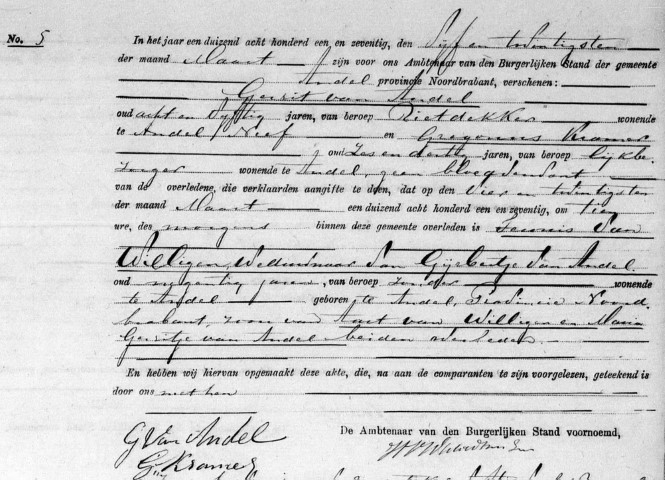 No. 5
In het jaar een duizend acht honderd een en zeventig, den Vijf en twintigsten
der maand Maart zijn voor ons Ambtenaar van den Burgerlijken Stand der gemeente
Andel provincie Noordbrabant, verschenen:
Gerrit van Andel
oud acht en vyftig jaren, van beroep Rietdekker wonende
te Andel Neef en Gregorius Kramer
oud Zes en dertig jaren, van beroep lijkbe-
zorger wonende te Andel, geen bloedverwant
van de overledene, die verklaarden aangifte te doen, dat op den Vier en twintigsten
der maand Maart een duizend acht honderd een en zeventig, om tien
ure, des morgens binnen deze gemeente overleden is Teunis Van
Willigen, Weduwnaar van Gijsbertje Van Andel
oud negentig jaren, van beroep zonder wonende
te Andel geboren te Andel, Provincie Noord
brabant, zoon van Aart van Willigen en Maria
Gerritje van Andel beiden overleden.
En hebben wij hiervan opgemaakt deze akte, die, na aan de comparanten te zijn voorgelezen, geteekend is
door ons met hen
De Ambtenaar van den Burgerlijken Stand voornoemd,
G Van Andel
G Kramer